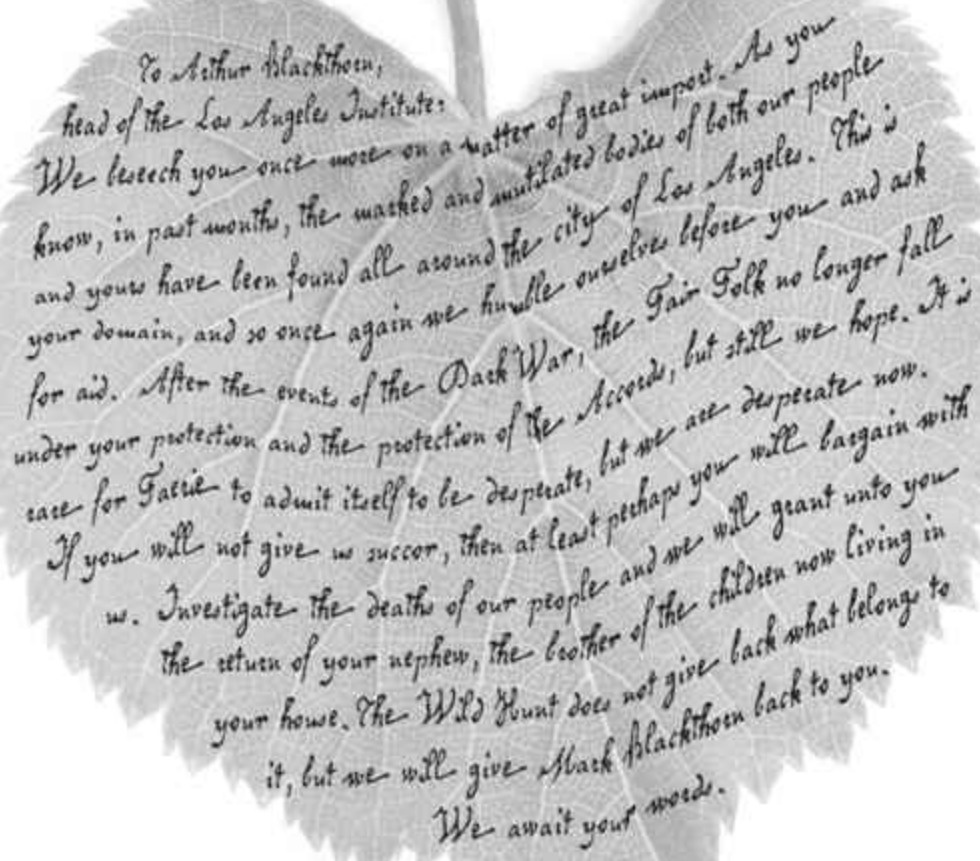 To Arthur Blackthorn,
head of the Los Angeles Institute:
We beseech you once more on a matter of great import. As you
know, in past months, the marked and mutilated bodies of both our people
and yours have been found all around the city of Los Angeles. This is
your domain, and so once again we humble ourselves before you and ask
for aid. After the events of the Dark War, the Fair Folk no longer fall
under your protection and the protection of the Accords, but still we hope. It is
rare for Faerie to admit itself to be desperate, but we are desperate now.
If you will not give us succor, then at least perhaps you will bargain with
us. Investigate the deaths of our people and we will grant unto you
the return of your nephew, the brother of the children now living in
your house. The Wild Hunt does not give back what belongs to
it, but we will give Mark Blackthorn back to you.
We await your words.